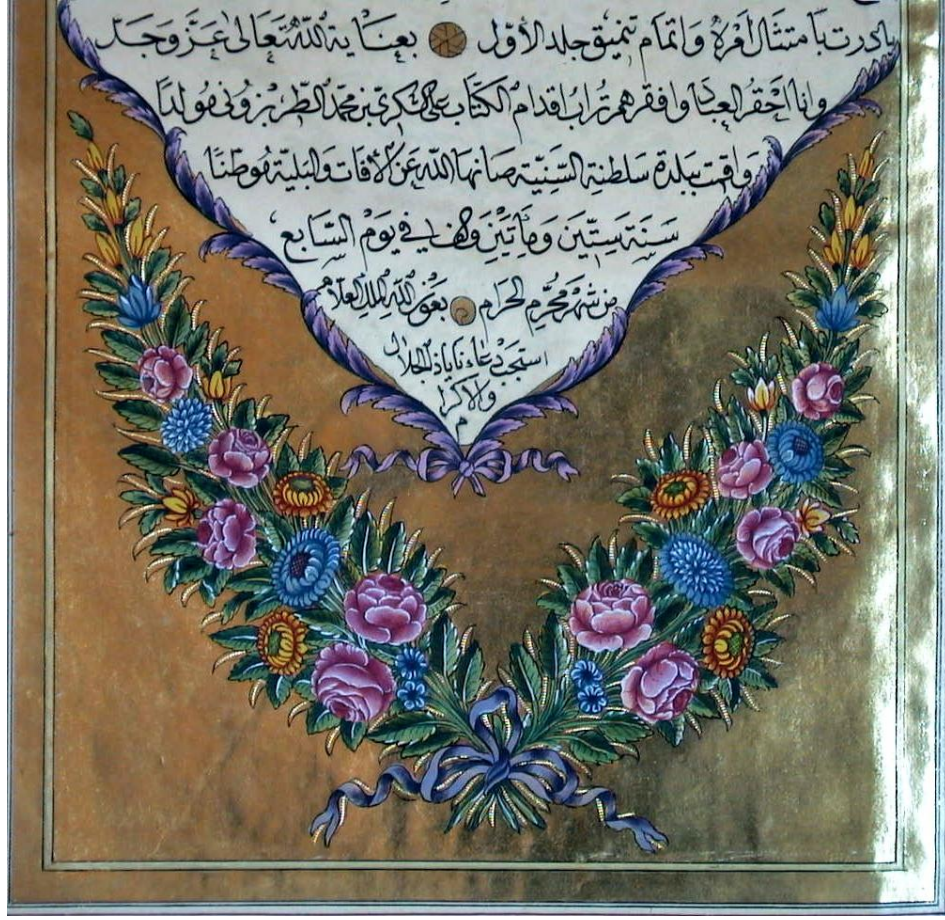 بادرت بامتثال أمره واتمام تنميق جلد الأوّل بعناية الله تعالى عزّ وجلّ
وانا احقر العباد وافقرهم تراب اقدام الكتّاب على الشكرى بن محمّد الطربزونى مولدًا
واقمت ببلدة سلطنة السّنيّة صانها الله عن الآفات والبليّة موطنًا
سنة ستّين ومأتين والف في يوم السّابع
من شهر محرّم الحرام بعون الله الملك العلّام
استجب دعاءنا ياذا الجلال
والاكرا
م